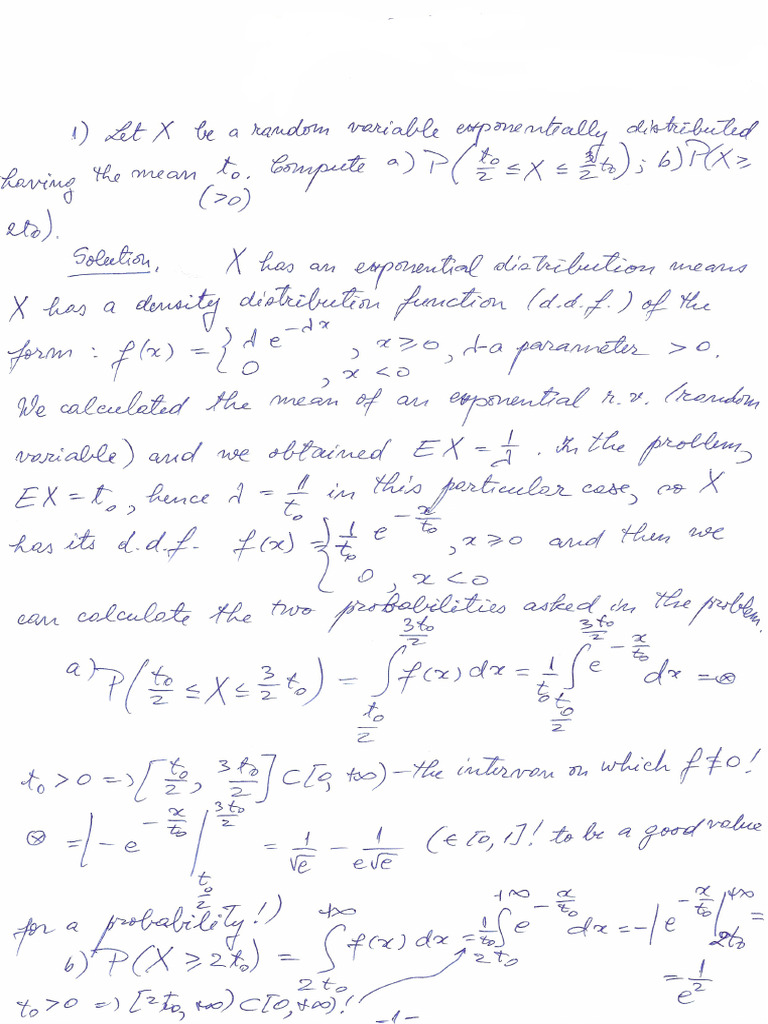 1) Let X be a random variable exponentially distributed
having the mean t₀. Compute a) P(t₀/2 ≤ X ≤ 3/2 t₀); b) P(X ≥
(>0)
2t₀).
Solution. X has an exponential distribution means
X has a density distribution function (d.d.f.) of the
form: f(x) = { λ e^{-λx}, x ≥ 0, λ-a parameter > 0.
0, x < 0
We calculated the mean of an exponential r.v. (random
variable) and we obtained EX = 1/λ. In the problem,
EX = t₀, hence λ = 1/t₀ in this particular case, so X
has its d.d.f. f(x) = { 1/t₀ e^{-x/t₀}, x ≥ 0 and then we
0, x < 0
can calculate the two probabilities asked in the problem.
a) P(t₀/2 ≤ X ≤ 3/2 t₀) = ∫_{t₀/2}^{3t₀/2} f(x) dx = 1/t₀ ∫_{t₀/2}^{3t₀/2} e^{-x/t₀} dx = ⊗
t₀ > 0 => [t₀/2, 3t₀/2] ⊂ [0, +∞) - the interval on which f ≠ 0!
⊗ = | -e^{-x/t₀} |_{t₀/2}^{3t₀/2} = 1/√e - 1/(e√e) (∈ [0, 1]! to be a good value
for a probability!)
b) P(X ≥ 2t₀) = ∫_{2t₀}^{+∞} f(x) dx = 1/t₀ ∫_{2t₀}^{+∞} e^{-x/t₀} dx = -| e^{-x/t₀} |_{2t₀}^{+∞} =
= 1/e²
t₀ > 0 => [2t₀, +∞) ⊂ [0, +∞)!
-1-